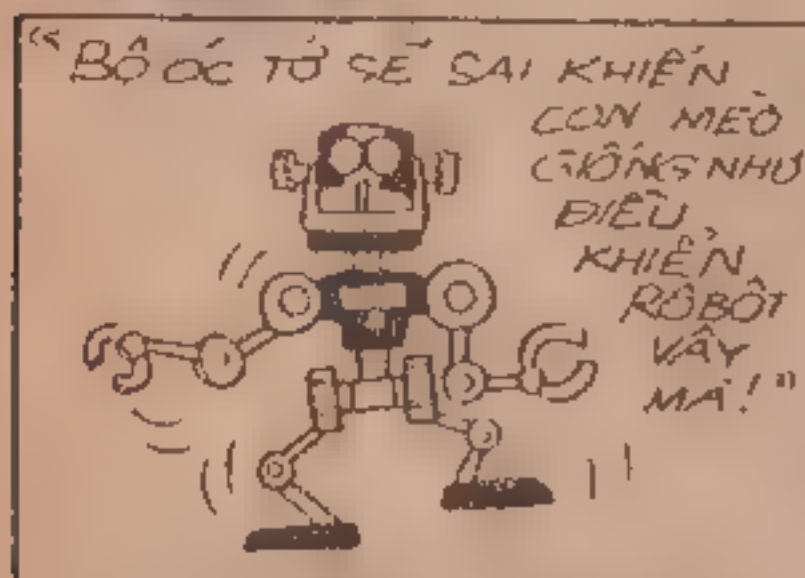 “BỘ ÓC TỚ SẼ SAI KHIẾN
CON MÈO
GIỐNG NHƯ
ĐIỀU
KHIỂN
RÔBỐT
VẬY
MÀ!”